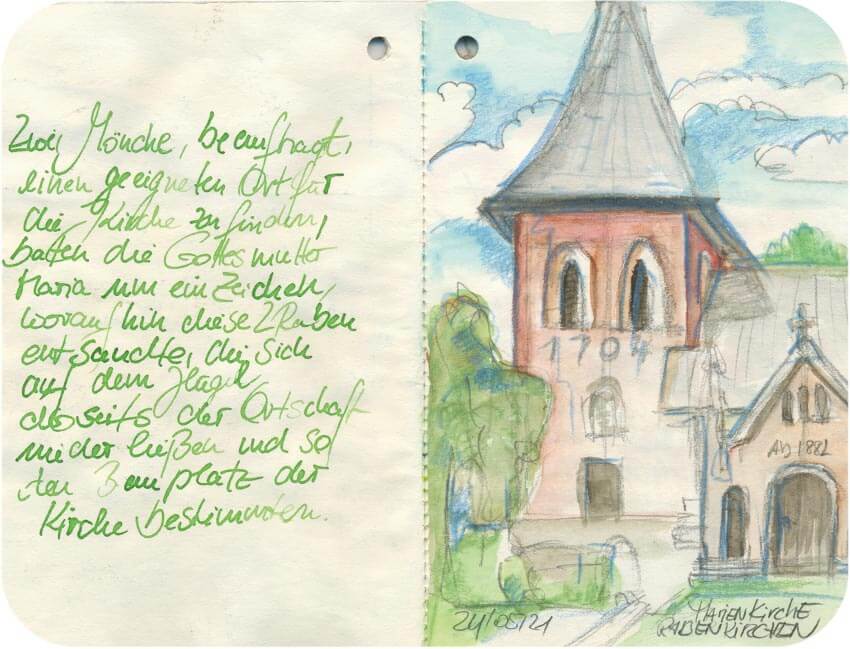 Zwei Mönche, beauftragt,
einen geeigneten Ort für
die Kirche zu finden,
baten die Gottesmutter
Maria um ein Zeichen,
woraufhin diese 2 Raben
entsandte, die sich
auf dem Hügel
abseits der Ortschaft
niederließen und so
den Bauplatz der
Kirche bestimmten.
1704
AD 1882
24/05/21
Marienkirche
Rabenkirchen